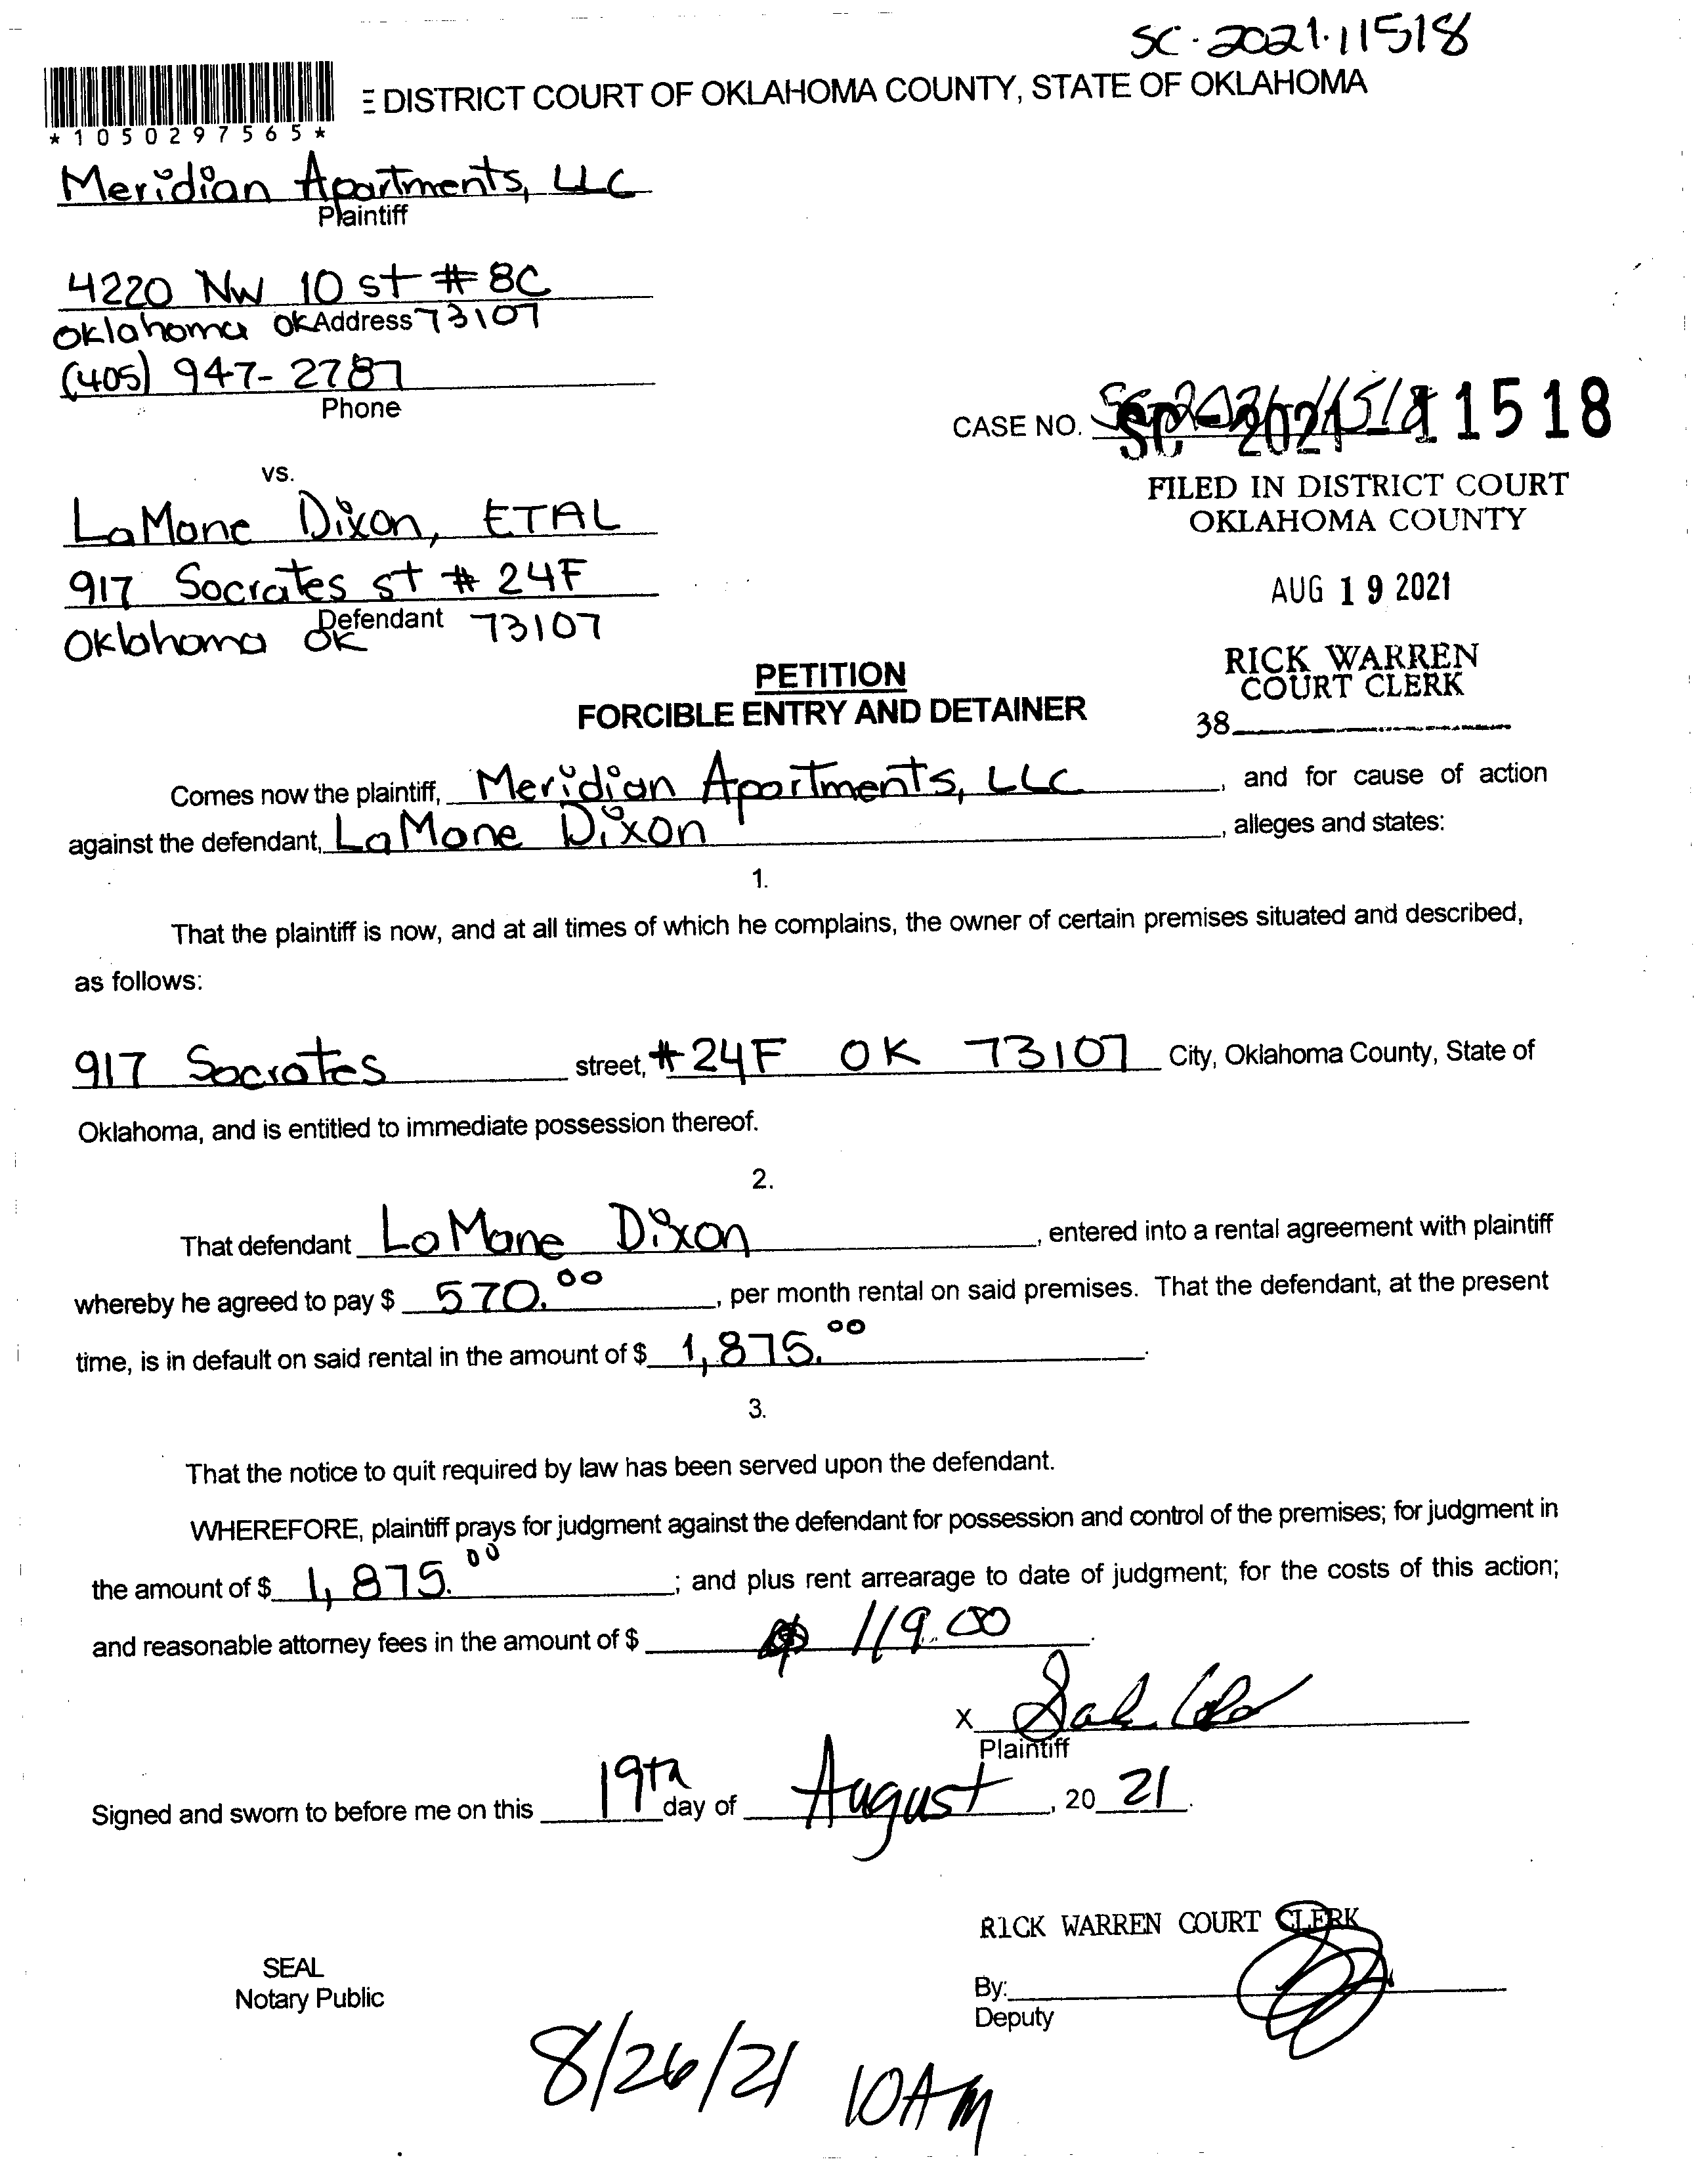 SC-2021-11518
DISTRICT COURT OF OKLAHOMA COUNTY, STATE OF OKLAHOMA
*1050297565*
Meridian Apartments, LLC
Plaintiff
4220 NW 10 st # 8C
Oklahoma OK Address 73107
(405) 947-2787
Phone
CASE NO. SC-2021-11518
SC-2021-11518
FILED IN DISTRICT COURT
OKLAHOMA COUNTY
AUG 19 2021
RICK WARREN
COURT CLERK
38
vs.
LaMone Dixon, ETAL
917 Socrates st # 24F
Defendant
Oklahoma OK 73107
PETITION
FORCIBLE ENTRY AND DETAINER
Comes now the plaintiff, Meridian Apartments, LLC, and for cause of action
against the defendant, LaMone Dixon, alleges and states:
1.
That the plaintiff is now, and at all times of which he complains, the owner of certain premises situated and described,
as follows:
917 Socrates street, #24F OK 73107 City, Oklahoma County, State of
Oklahoma, and is entitled to immediate possession thereof.
2.
That defendant LaMone Dixon, entered into a rental agreement with plaintiff
whereby he agreed to pay $ 570.00, per month rental on said premises. That the defendant, at the present
time, is in default on said rental in the amount of $ 1,875.00.
3.
That the notice to quit required by law has been served upon the defendant.
WHEREFORE, plaintiff prays for judgment against the defendant for possession and control of the premises; for judgment in
the amount of $ 1,875.00; and plus rent arrearage to date of judgment; for the costs of this action;
and reasonable attorney fees in the amount of $ 119.00.
X
Plaintiff
Signed and sworn to before me on this 19th day of August, 20 21.
RICK WARREN COURT CLERK
SEAL
Notary Public
By:
Deputy
8/26/21 10AM